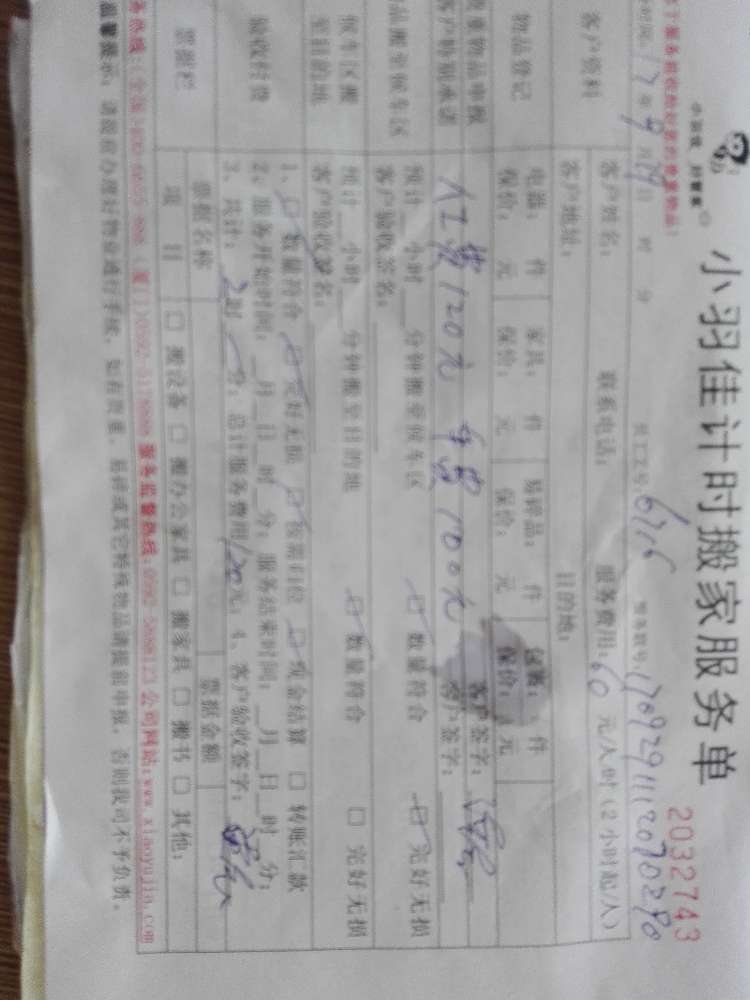 小羽佳 好管家
小羽佳计时搬家服务单
2032743
17年9月29日 时 分
员工工号:6716
服务联号:1709291112070290
客户资料
客户姓名:
联系电话:
服务费用:60元/人时(2小时起/人)
客户地址:
目的地:
物品登记
电器: 件
家具: 件
易碎品: 件
件
保价: 元
保价: 元
保价: 元
保价: 元
贵重物品申报
客户签字:
客户特别承诺
人工费120元 车费100元
客户签字:
物品搬至候车区
预计__小时__分钟搬至候车区
☑ 数量符合
☑ 完好无损
客户验收签名:
候车区搬至目的地
预计__小时__分钟搬至目的地
☑ 数量符合
□ 完好无损
客户验收签名:
验收付费
1、☑ 数量符合 ☑ 完好无损 ☑ 按需归位 ☑ 现金结算 □ 转账汇款
2、服务开始时间:__月__日__时__分;服务结束时间:__月__日__时__分;
3、共计:2时__分;总计服务费用120元;4、客户验收签字:
票据栏
票据名称
票据金额
项目
□ 搬设备 □ 搬办公家具 □ 搬家具 □ 搬书 □ 其他:
服务监督热线:0592-5688123 公司网站:www.xiaoyujia.com
温馨提示:请提前办理好物业通行手续,如有贵重、易碎或其它特殊物品请提前申报,否则我司不予负责。